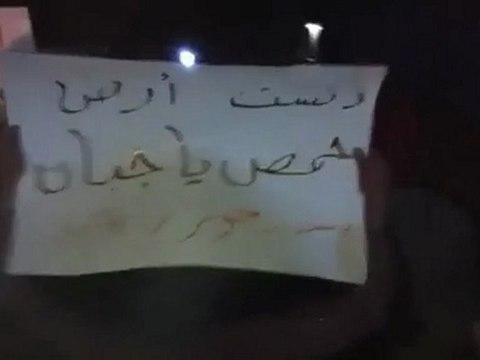 دنست أرض
حمص يا جبان